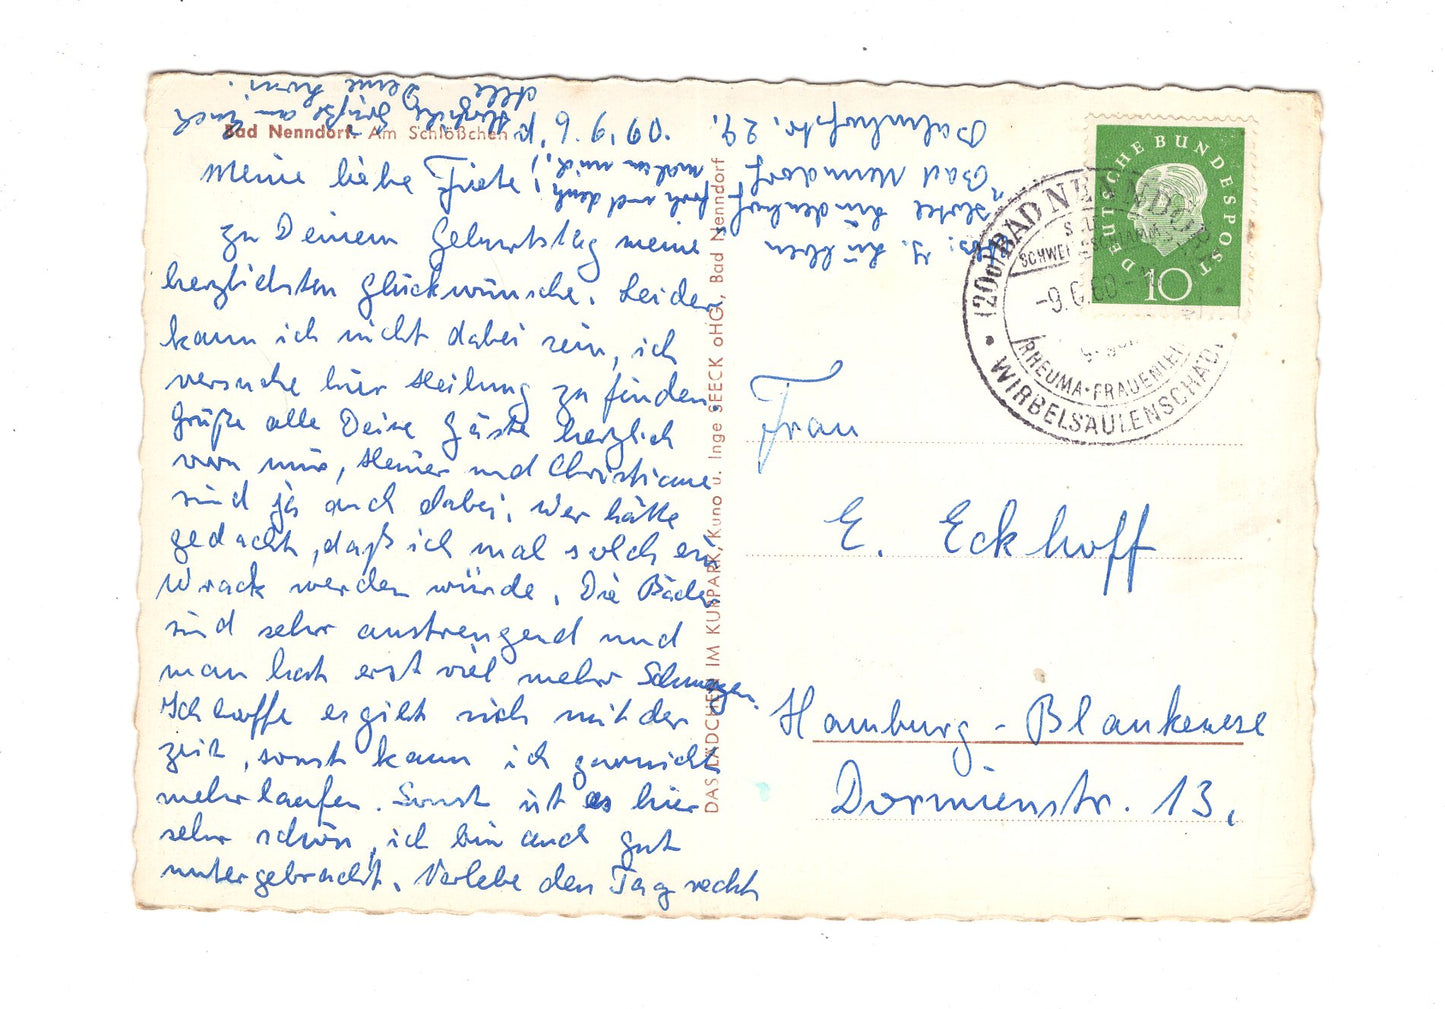 Bad Nenndorf. Am Schlößchen
Meine liebe Friete!
Zu Deinem Geburtstag meine
herzlichsten Glückwünsche. Leider
kann ich nicht dabei sein, ich
versuche hier Heilung zu finden.
Grüße alle Deine Gäste herzlich
von mir, Heiner und Christiane
sind ja auch dabei. Wer hätte
gedacht, daß ich mal solch ein
Wrack werden würde. Die Bäder
sind sehr anstrengend und
man hat erst viel mehr Schmerzen.
Ich hoffe es gibt sich mit der
Zeit, sonst kann ich garnicht
mehr laufen. Sonst ist es hier
sehr schön, ich bin auch gut
untergebracht. Verlebe den Tag recht
froh und denk
mal an mich,
Herzliche Grüße an Euch
alle Deine
9.6.60.
DAS LÄDCHEN IM KURPARK, Kuno u. Inge SEECK oHG., Bad Nenndorf
Abs.
Hotel Lindenhof
Bad Nenndorf
Bahnhofstr. 29.
DEUTSCHE BUNDESPOST
10
(20a) BAD NENNDORF
-9.6.60
RHEUMA · FRAUENLEI
WIRBELSÄULENSCHÄD.
Frau
E. Eckhoff
Hamburg - Blankenese
Dormienstr. 13.